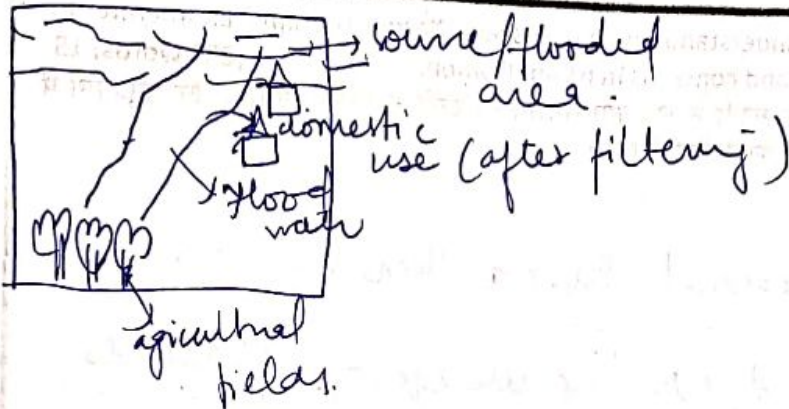 source/flooded
area.
domestic
use (after filtering)
flood
agricultural
fields.